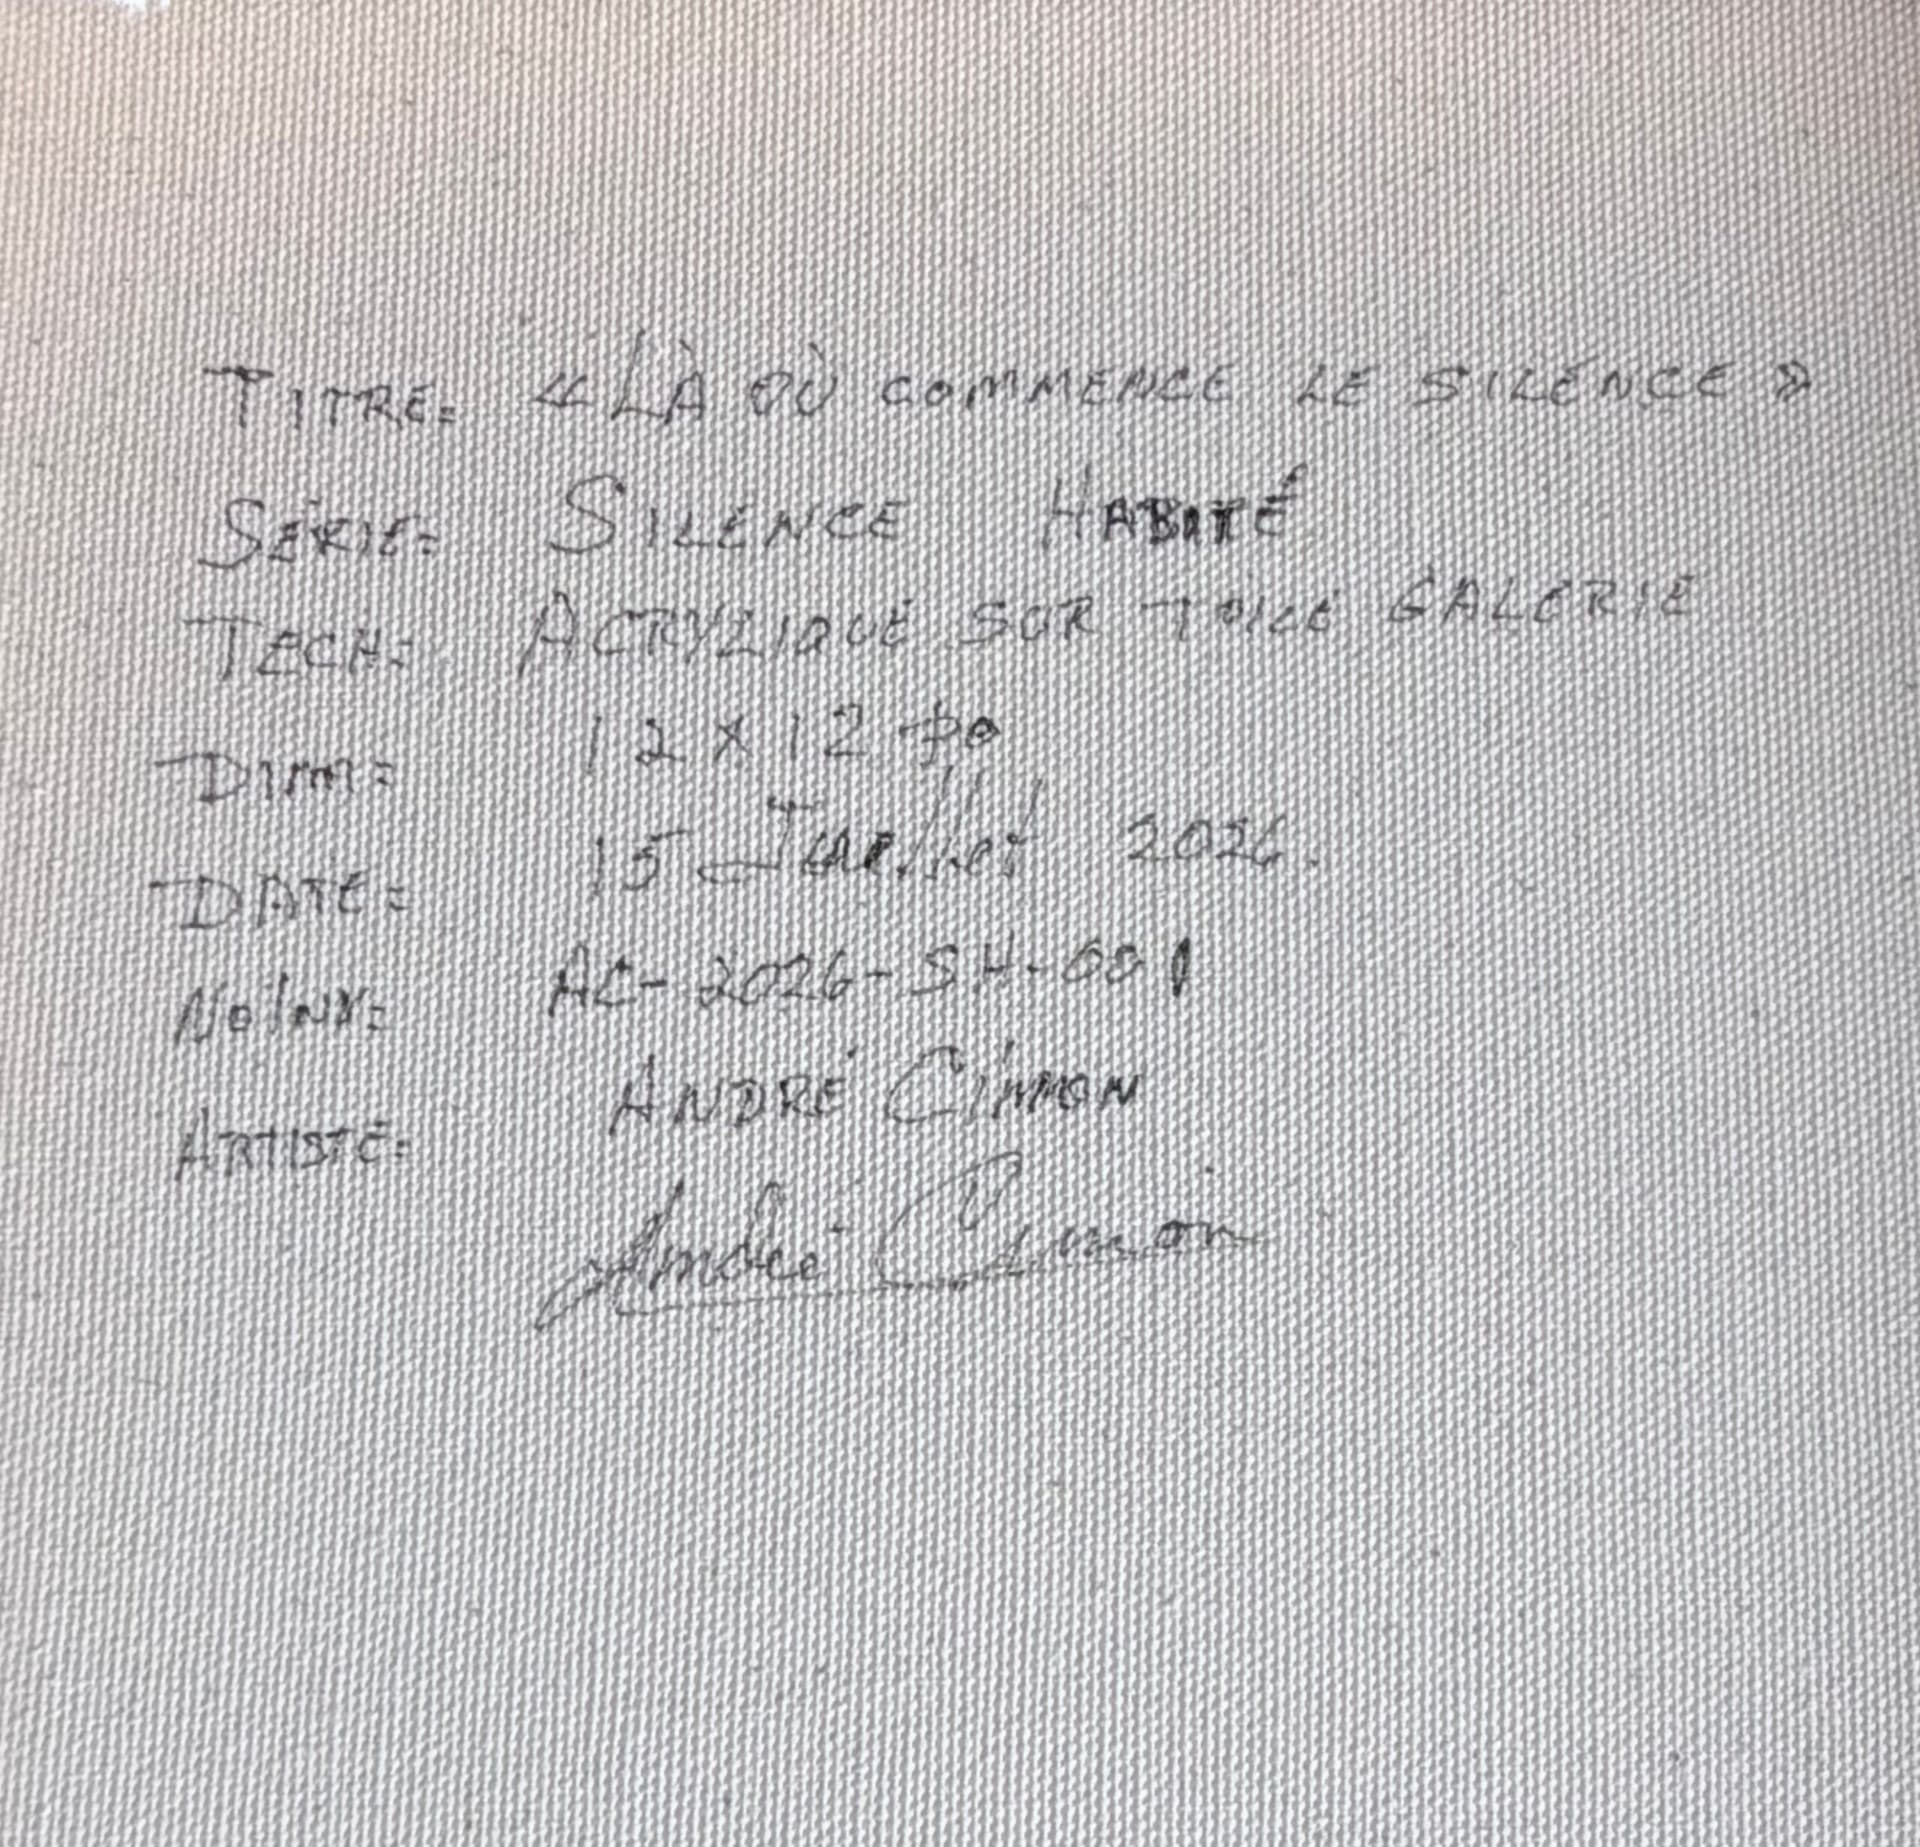 TITRE= « LÀ OÙ COMMENCE LE SILENCE »
SÉRIE= SILENCE HABITÉ
TECH= ACRYLIQUE SUR TOILE GALERIE
DIM= 12 X 12 po
DATE= 15 Juillet 2026.
No INV= AC-2026-SH-001
ARTISTE= ANDRÉ CIMON
André Cimon